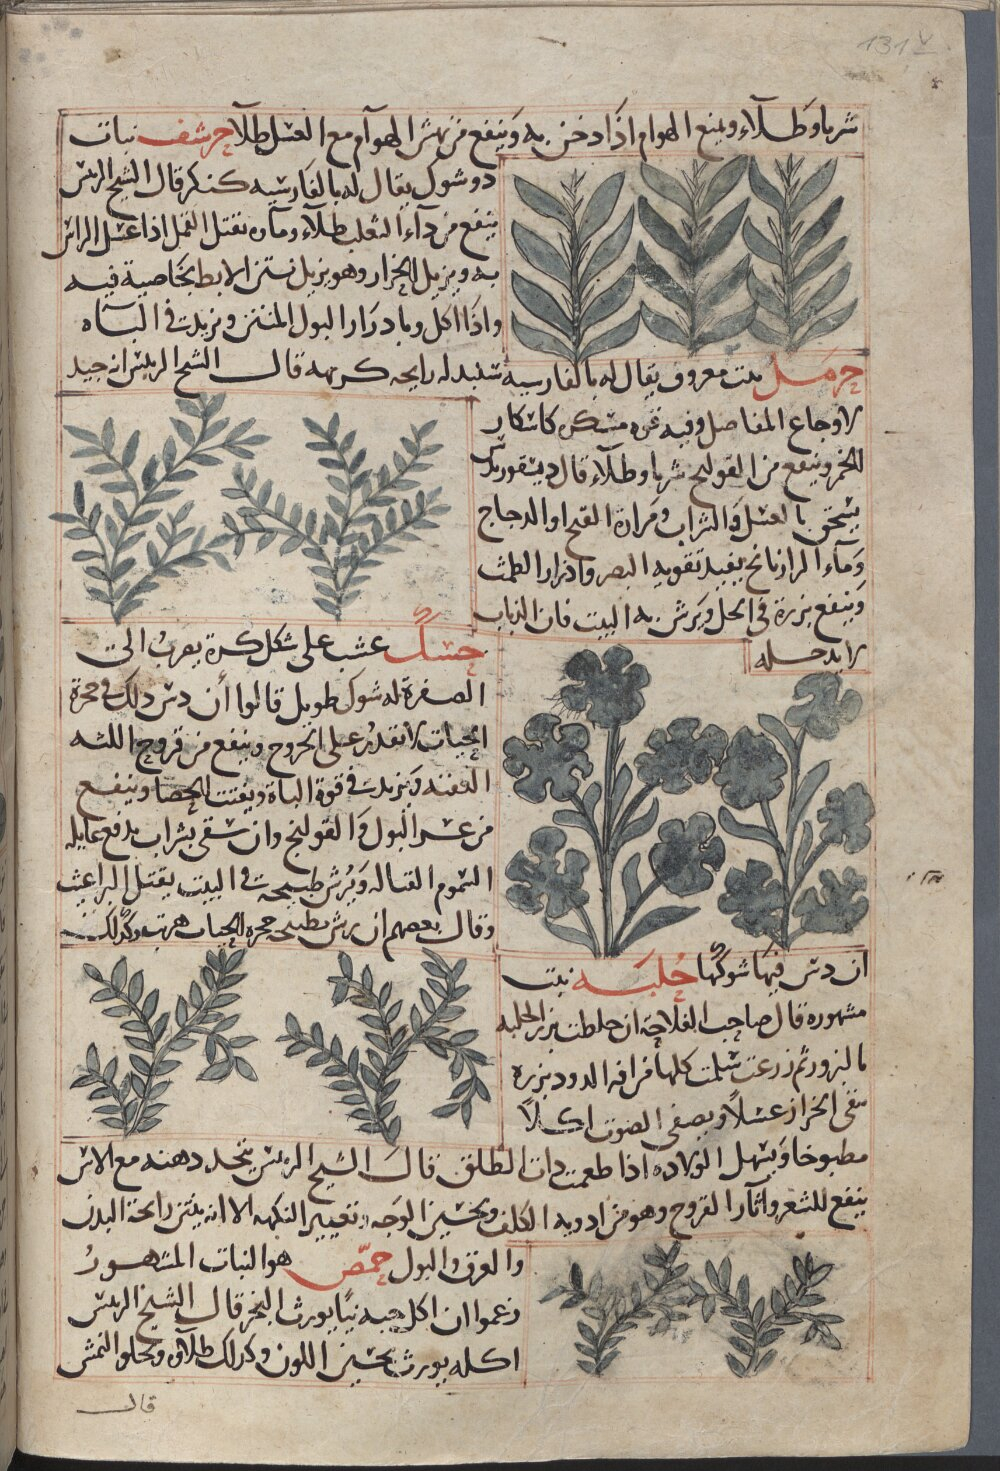 131v
شربا وطلاء ويمنع الهوام اذا دخن به وينفع من نهش الهوآم مع العسل طلا حرشف نبات
ذو شوك يقال له بالفارسيه كنكر قال الشيخ الريس
ينفع من دآء الثعلب طلآء وماوه يقتل القمل اذا غسل الراس
به ويزيل الحزاز وهو يزيل نتن الابط بخاصية فيه
واذا اكل وبادرار البول المنتن ويزيد في البآه
حرمل نبت معروف يقال له بالفارسيه سنبد له رايحه كريهه قال الشيخ الريس انه جيد
لاوجاع المفاصل وفيه قوة مسكرة كاسكار
الخمر وينفع من القولنج شربا وطلآء قال ديسقوريدس
يسحق بالعسل والشراب ومرارة القبج او الدجاج
ومآء الرازيانج يفيد تقويه البصر وادرار الطمث
وينفع بزره في الخل ويرش به البيت فان الذباب
لا يدخله
حسك عشب على شكل كرة يضرب الى
الصفرة له شوك طويل قالوا أن دس ذلك في حجرة
الحيات لا تقدر على الخروج وينفع من قروح اللثه
العفنه ويزيد في قوة الباة ويفتت الحصا وينفع
من عسر البول والقولنج وان سقى بشراب يدفع غايله
السموم القتاله ويرش طبيخه في البيت يقتل البراغيث
وقال بعضهم ان رش بطبيخه حجرة الحيات هربت وكذلك
ان دس فيها شوكها حلبه نبت
مشهوره قال صاحب الفلاحة ان خلطت بزر الحلبه
بالبزور ثم زرعت سلمت كلها من افه الدود بزره
ينقى الحزاز غسلاً ويصفى الصوت اكلاً
مطبوخا ويسهل الولاده اذا طعمت ذات الطلق قال الشيخ الريس يتخذ دهنه مع الاس
ينفع للشعر وآثار القروح وهو من ادويه الكلف وتحسين الوجه وتغيير النكهه الا انه ينتن رائحة البدن
والعرق والبول حمّص هو النبات المشهورُ
زعموا ان اكل حبه نيًا يورث البخر قال الشيخ الريس
اكله يورث تحسين اللون وكذلك طلآوه ويجلو النمش
قال